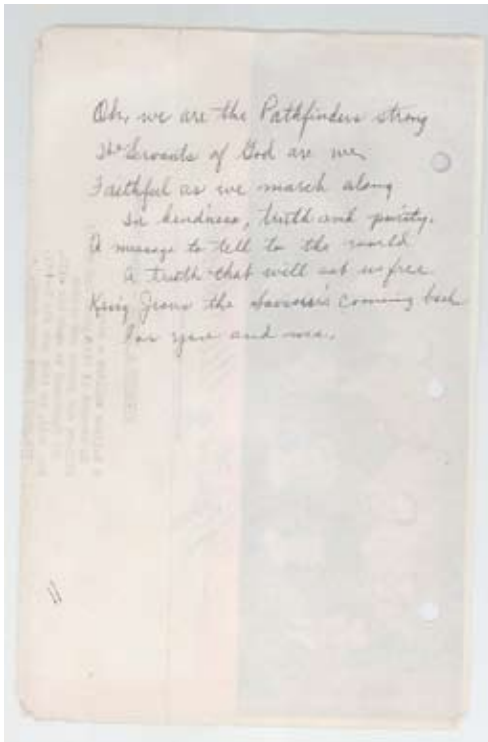 Oh, we are the Pathfinders strong
The Servants of God are we,
Faithful as we march along
In kindness, truth and purity.
A message to tell to the world
A truth that will set us free
King Jesus the Saviour's coming back
For you and me.
11